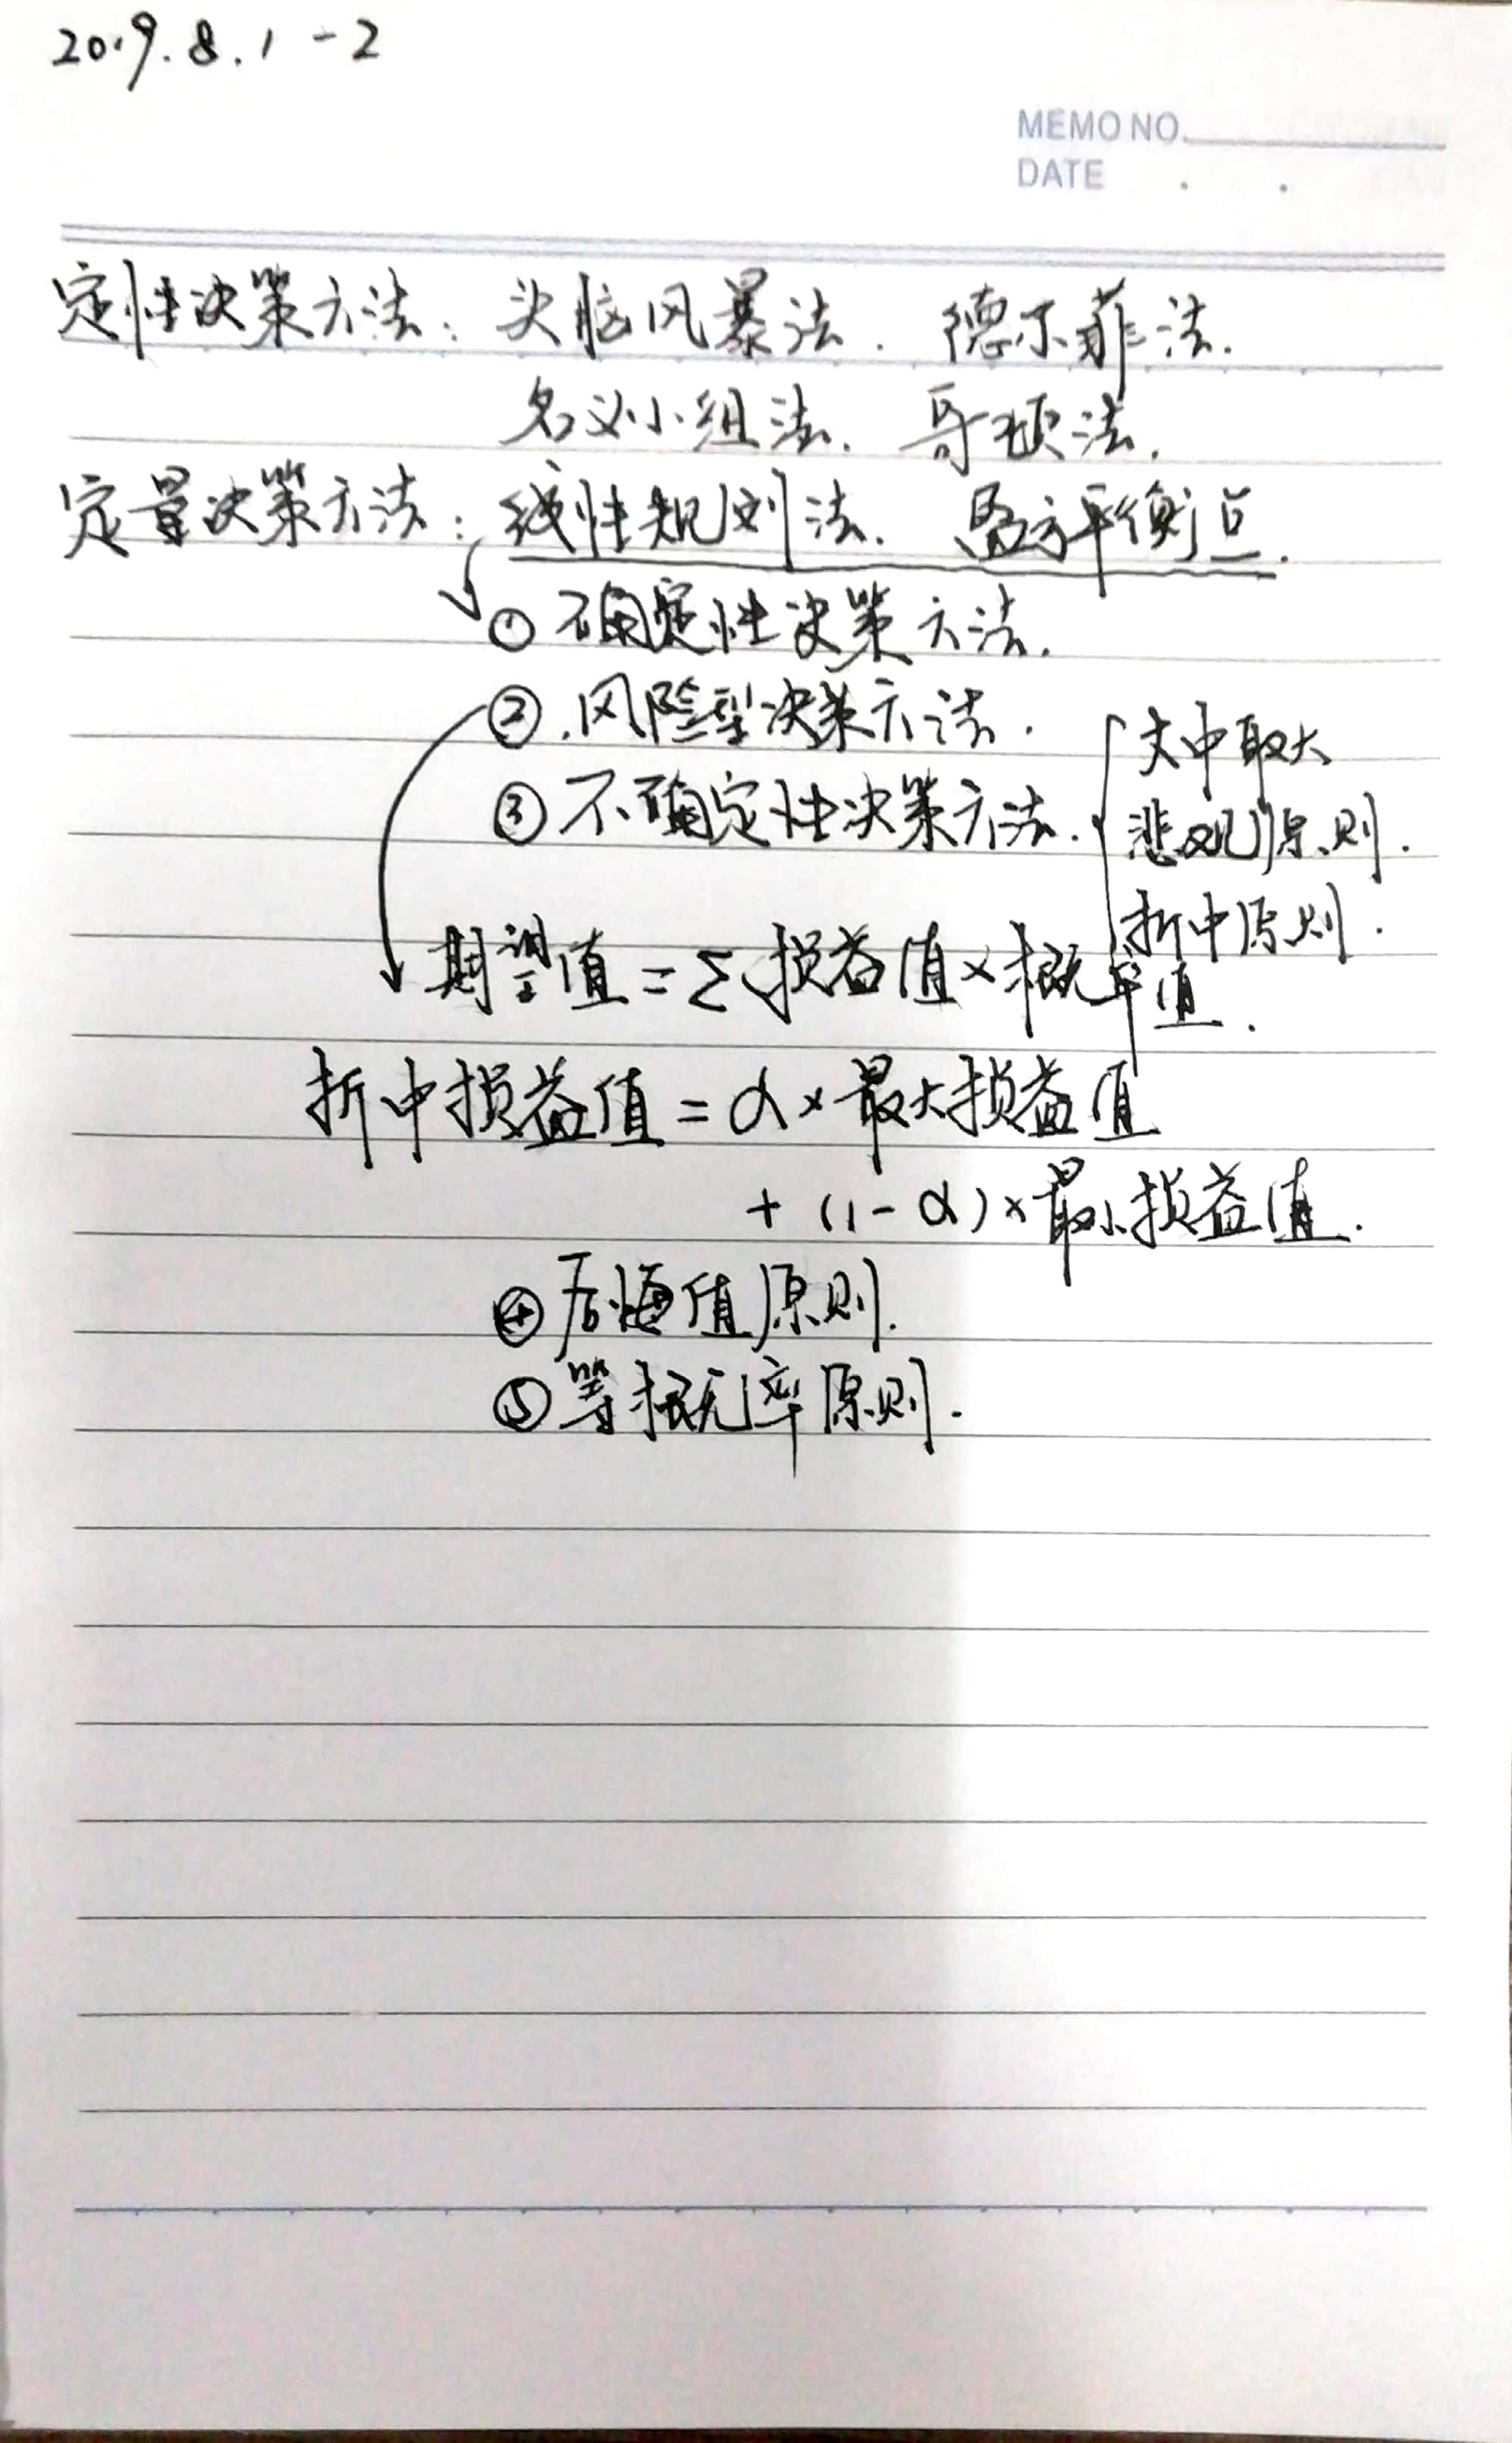 2019.8.1-2
MEMO NO.
DATE . .
定性决策方法：头脑风暴法. 德尔菲法.
名义小组法. 哥顿法.
定量决策方法：线性规划法. 盈亏平衡点.
① 确定性决策方法.
②.风险型决策方法.
③ 不确定性决策方法.
大中取大
悲观原则.
折中原则.
期望值=Σ损益值×概率值.
折中损益值=α×最大损益值
+(1-α)×最小损益值.
④后悔值原则.
⑤等概率原则.